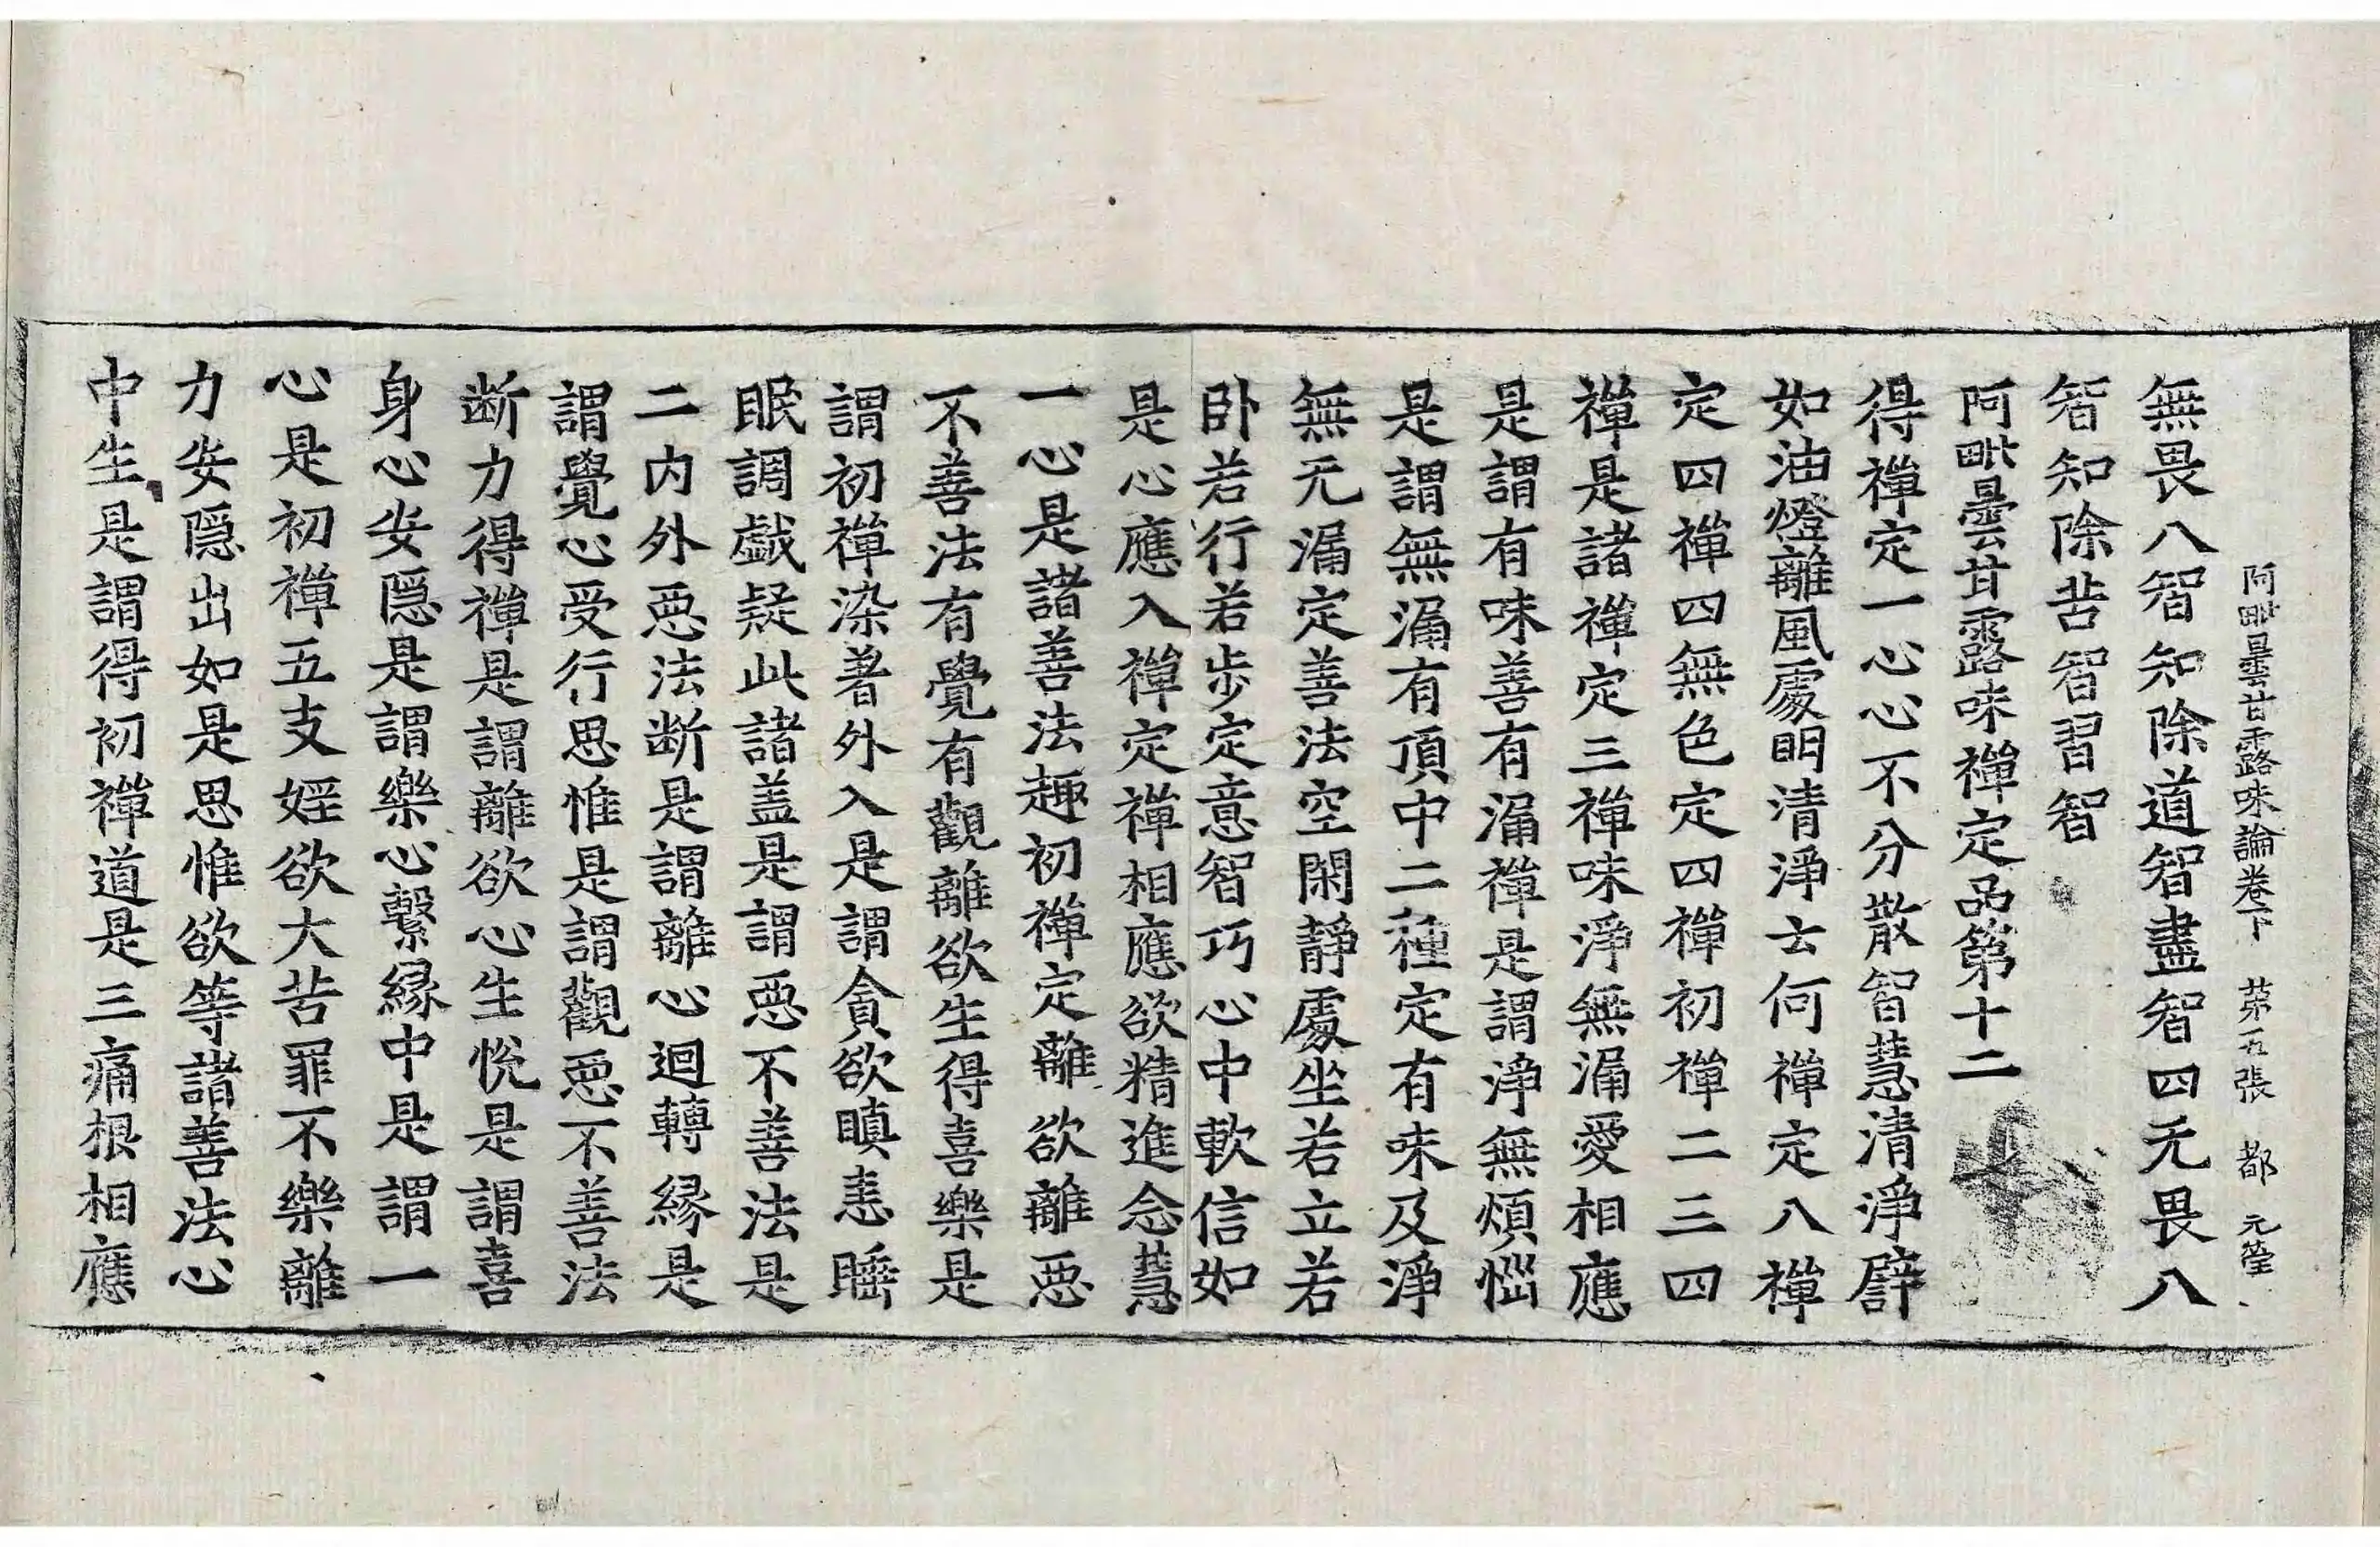 阿毗曇甘露味論卷下 第五張 都 元瑩
無畏八智知除道智盡智四无畏八
智知除苦智習智
阿毗曇甘露味禪定品第十二
得禪定一心心不分散智慧清淨譬
如油燈離風處明清淨云何禪定八禪
定四禪四無色定四禪初禪二三四
禪是諸禪定三禪味淨無漏愛相應
是謂有味善有漏禪是謂淨無煩惱
是謂無漏有頂中二種定有味及淨
無无漏定善法空閑靜處坐若立若
卧若行若步定意智巧心中軟信如
是心應入禪定禪相應欲精進念慧
一心是諸善法趣初禪定離欲離惡
不善法有覺有觀離欲生得喜樂是
謂初禪染著外入是謂貪欲瞋恚睡
眠調戲疑此諸盖是謂惡不善法是
二內外惡法断是謂離心迴轉緣是
謂覺心受行思惟是謂觀惡不善法
断力得禪是謂離欲心生悅是謂喜
身心安隱是謂樂心繫緣中是謂一
心是初禪五支婬欲大苦罪不樂離
力安隱出如是思惟欲等諸善法心
中生是謂得初禪道是三痛根相應